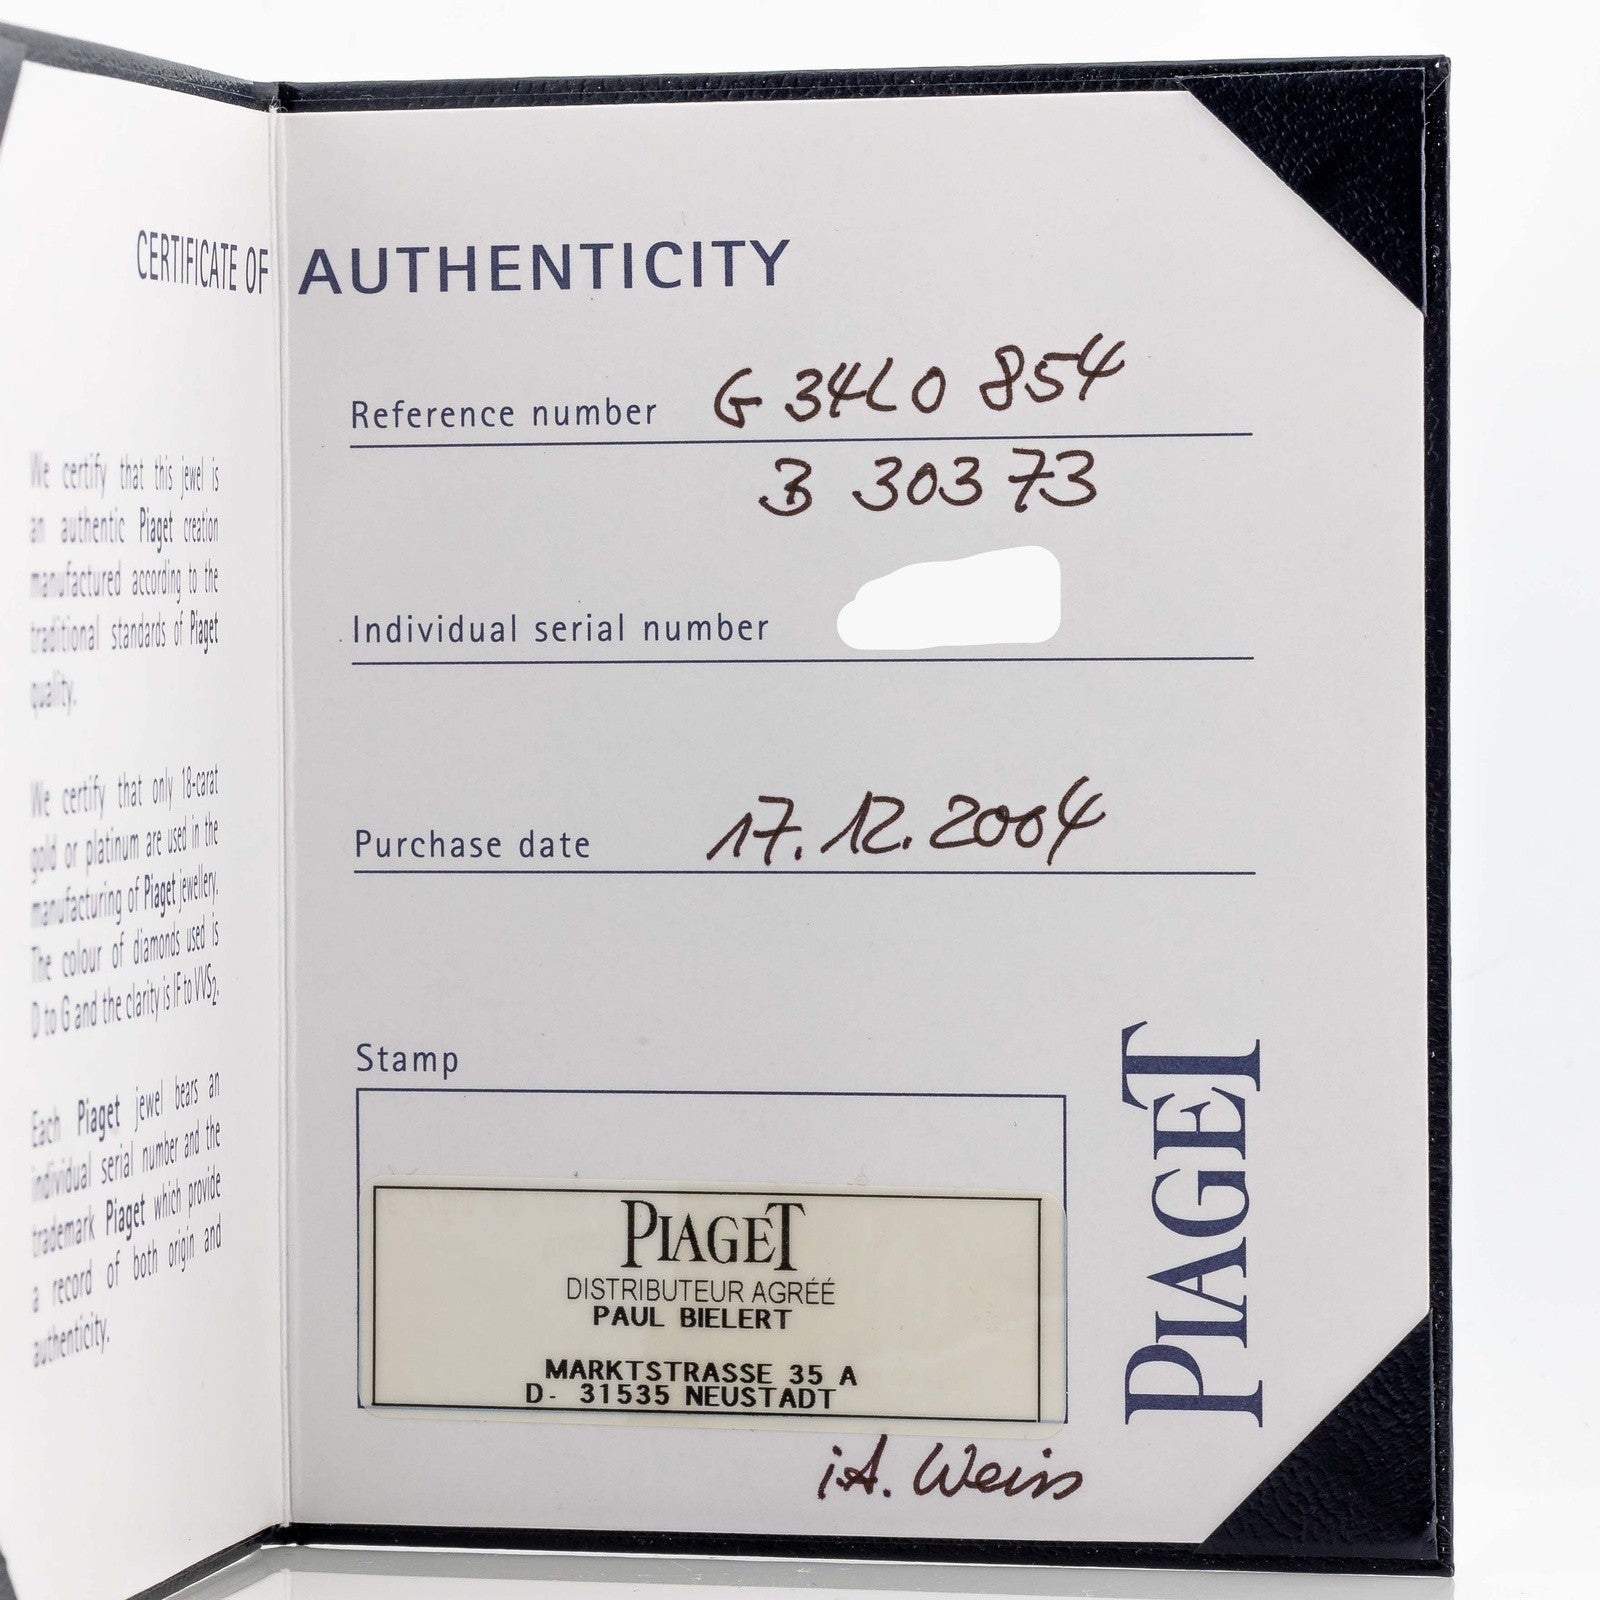 CERTIFICATE OF AUTHENTICITY
We certify that this jewel is
an authentic Piaget creation
manufactured according to the
traditional standards of Piaget
quality.
We certify that only 18-carat
gold or platinum are used in the
manufacturing of Piaget jewellery.
The colour of diamonds used is
D to G and the clarity is IF to VVS2.
Each Piaget jewel bears an
individual serial number and the
trademark Piaget which provide
a record of both origin and
authenticity.
Reference number G 34L0 854
3 30373
Individual serial number
Purchase date 17.12.2004
Stamp
PIAGET
DISTRIBUTEUR AGRÉÉ
PAUL BIELERT
MARKTSTRASSE 35 A
D- 31535 NEUSTADT
i.A. Weiss
PIAGET